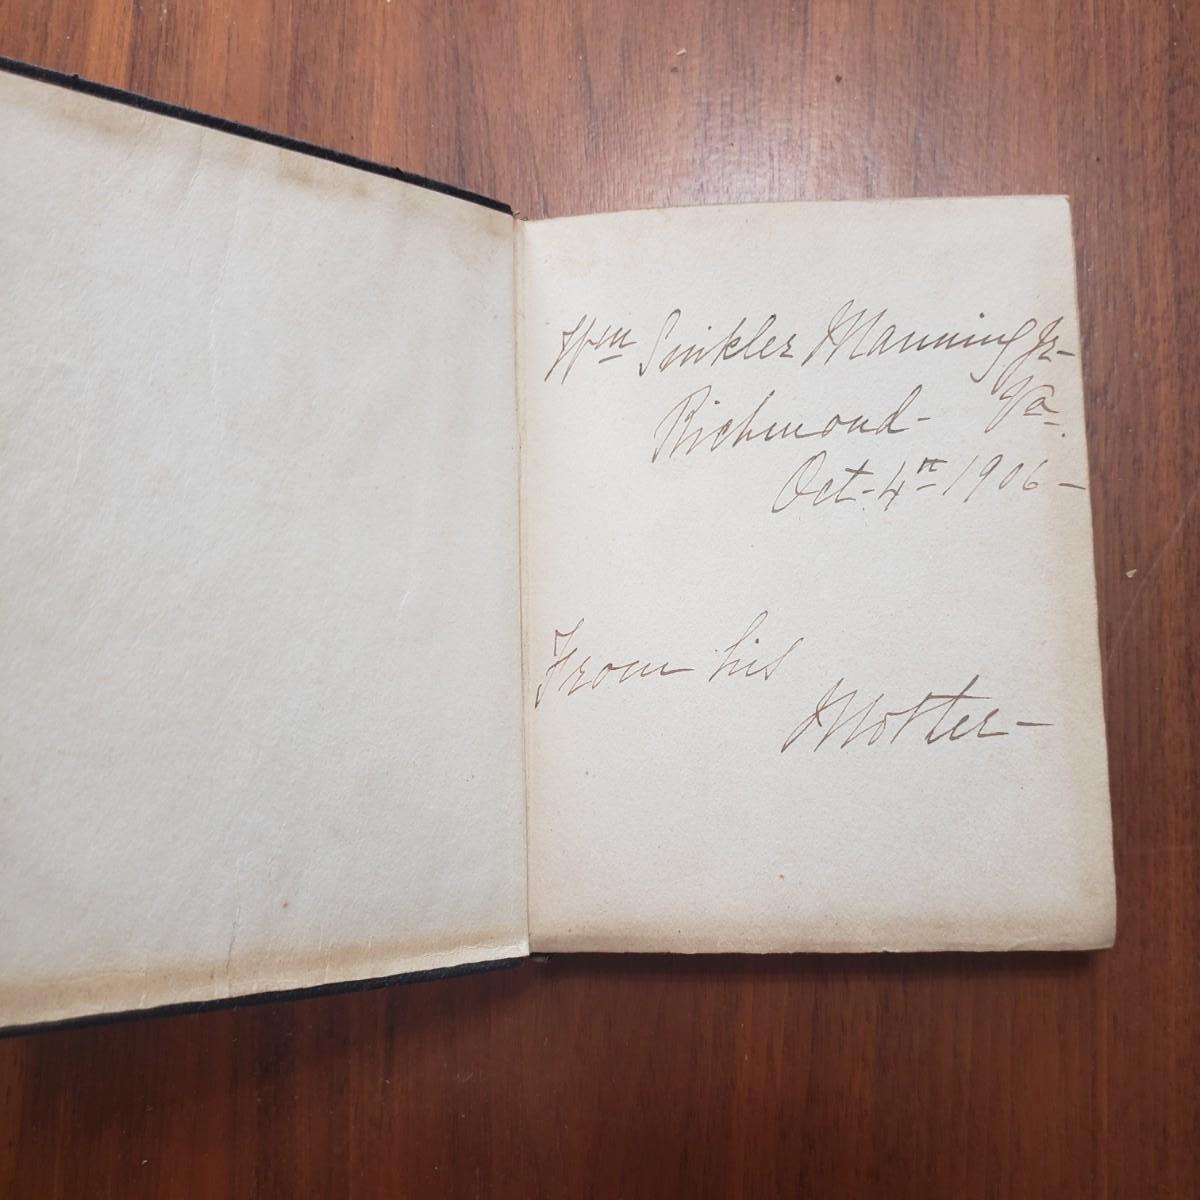 Wm Sinkler Manning Jr-
Richmond- Va.
Oct-4th 1906-
From his
Mother-